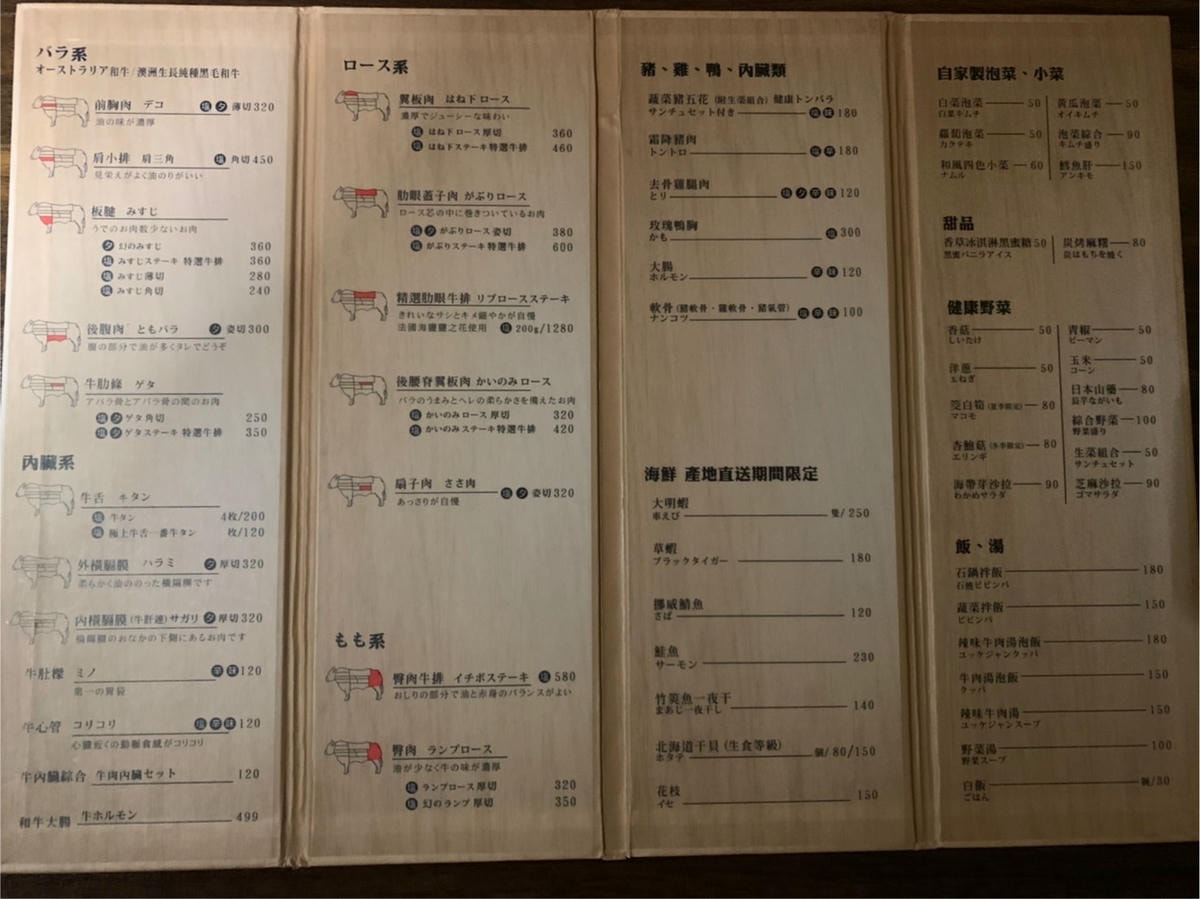 バラ系
オーストラリア和牛/澳洲生長純種黑毛和牛
前胸肉 デコ 塩 タ 薄切320
油の味が濃厚
肩小排 肩三角 塩 角切450
見栄えがよく油のりがいい
板腱 みすじ
うでのお肉数少ないお肉
タ 幻のみすじ 360
塩 みすじステーキ 特選牛排 360
塩 みすじ薄切 280
塩 みすじ角切 240
後腹肉 ともバラ タ 姿切300
腹の部分で油が多くタレでどうぞ
牛肋條 ゲタ
アバラ骨とアバラ骨の間のお肉
塩 タ ゲタ角切 250
塩 タ ゲタステーキ 特選牛排 350
內臟系
牛舌 牛タン
塩 牛タン 4枚/200
塩 極上牛舌一番牛タン 枚/120
外橫膈膜 ハラミ タ 厚切320
柔らかく油ののった横隔膜です
內橫膈膜(牛肝連)サガリ タ 厚切320
横隔膜のおなかの下側にあるお肉です
牛肚樑 ミノ 辛 味 120
第一の胃袋
牛心管 コリコリ 塩 辛 味 120
心臓近くの動脈食感がコリコリ
牛內臟綜合 牛肉内臓セット 120
和牛大腸 牛ホルモン 499
ロース系
翼板肉 はね下ロース
濃厚でジューシーな味わい
塩 はね下ロース厚切 360
塩 はね下ステーキ特選牛排 460
肋眼蓋子肉 がぶりロース
ロース芯の中に巻きついているお肉
塩 タ がぶりロース 姿切 380
塩 がぶりステーキ 特選牛排 600
精選肋眼牛排 リブロースステーキ
きれいなサシとキメ細やかが自慢
法國海鹽鹽之花使用 塩 200g/1280
後腰脊翼板肉 かいのみロース
バラのうまみとヘレの柔らかさを備えたお肉
塩 かいのみロース 厚切 320
塩 かいのみステーキ特選牛排 420
扇子肉 ささ肉 塩 タ 姿切320
あっさりが自慢
もも系
臀肉牛排 イチボステーキ 塩 580
おしりの部分で油と赤身のバランスがよい
臀肉 ランプロース
油が少なく牛の味が濃厚
塩 ランプロース 厚切 320
塩 幻のランプ 厚切 350
豬、雞、鴨、內臟類
蔬菜豬五花 (附生菜組合) 健康トンバラ
サンチュセット付き 塩 味 180
霜降豬肉
トントロ 塩 辛 180
去骨雞腿肉
とり 塩 タ 辛 味 120
玫瑰鴨胸
かも 塩 300
大腸
ホルモン 辛 味 120
軟骨 (豬軟骨、雞軟骨、豬氣管)
ナンコツ 塩 辛 味 100
海鮮 產地直送期間限定
大明蝦
車えび 隻/250
草蝦
ブラックタイガー 180
挪威鯖魚
さば 120
鮭魚
サーモン 230
竹筴魚一夜干
まあじ一夜干し 140
北海道干貝 (生食等級)
ホタテ 個/80/150
花枝
イセ 150
自家製泡菜、小菜
白菜泡菜 50
白菜キムチ
蘿蔔泡菜 50
カクテキ
和風四色小菜 60
ナムル
黃瓜泡菜 50
オイキムチ
泡菜綜合 90
キムチ盛り
鱈魚肝 150
アンキモ
甜品
香草冰淇淋黑蜜糖50
黒蜜バニラアイス
炭烤麻糬 80
炭はもちを焼く
健康野菜
香菇 50
しいたけ
洋蔥 50
玉ねぎ
筊白筍(夏季限定) 80
マコモ
杏鮑菇(冬季限定) 80
エリンギ
海帶芽沙拉 90
わかめサラダ
青椒 50
ピーマン
玉米 50
コーン
日本山藥 80
長芋ながいも
綜合野菜 100
野菜盛り
生菜組合 50
サンチュセット
芝麻沙拉 90
ゴマサラダ
飯、湯
石鍋拌飯 180
石焼ビビンバ
蔬菜拌飯 150
ビビンバ
辣味牛肉湯泡飯 180
ユッケジャンクッパ
牛肉湯泡飯 150
クッパ
辣味牛肉湯 150
ユッケジャンスープ
野菜湯 100
野菜スープ
白飯 碗/30
ごはん